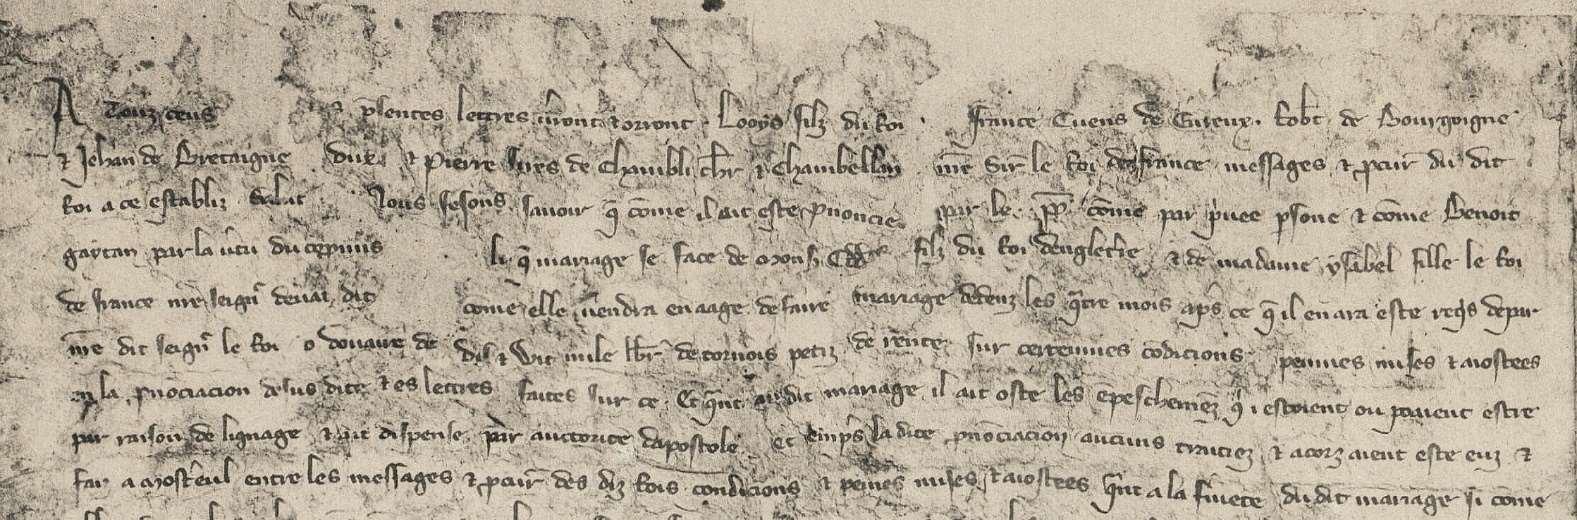 A Touz ceus p̃sentes lettres v̾ront & orront . Looys filz du Roi france Cuens de Evreux . Rob̃t de Bourgoigne
& Jehan de Bretaigne dux & Pierre sires de Chambli ch̃r & Chambellan nr̃e Sir̃ le Roi de france messages & ꝓcur̃ du dit
Roi a ce establiz Salut Nous fesons savoir q̃ cõme il ait este p̃noncie par le p̃p̃ cõme par p̾vee p̃sone & cõme Benoit
gaytan par la v̾tu du cõpmis li q̃ mariage se face de Mons̃ Edd̃ filz du Roi dengletr̃e & de madame ysabel fille le Roi
de france nr̃e seign̾ devãt dit cõme elle vendra en aage de faire mariage dedenz les q̃tre mois ap̃s ce q̃ il en ara este req̾s depar
nr̃e dit seign̾ le Roi o douaire de dis & Wit mile lb̃r de tornois petiz de rente sur certeinnes cõdicions peinnes mises & aiostees
en la p̃nõciacion desus dite & es lettres faites sur ce . Et q̃nt au dit mariage il ait oste les ẽpeschemẽz q̾ i estoient ou pouient estre
par raison de lignage & ait dispense par auctorite dapostole . et emp̃s la dite p̃nõciacion aucuns traitiez & acorz aient este euz &
faiz a Mostr̃eul entre les messages & ꝓcur̃ des diz Rois condicions & peines mises & aiostees q̃nt a la fiuete du dit mariage si cõme